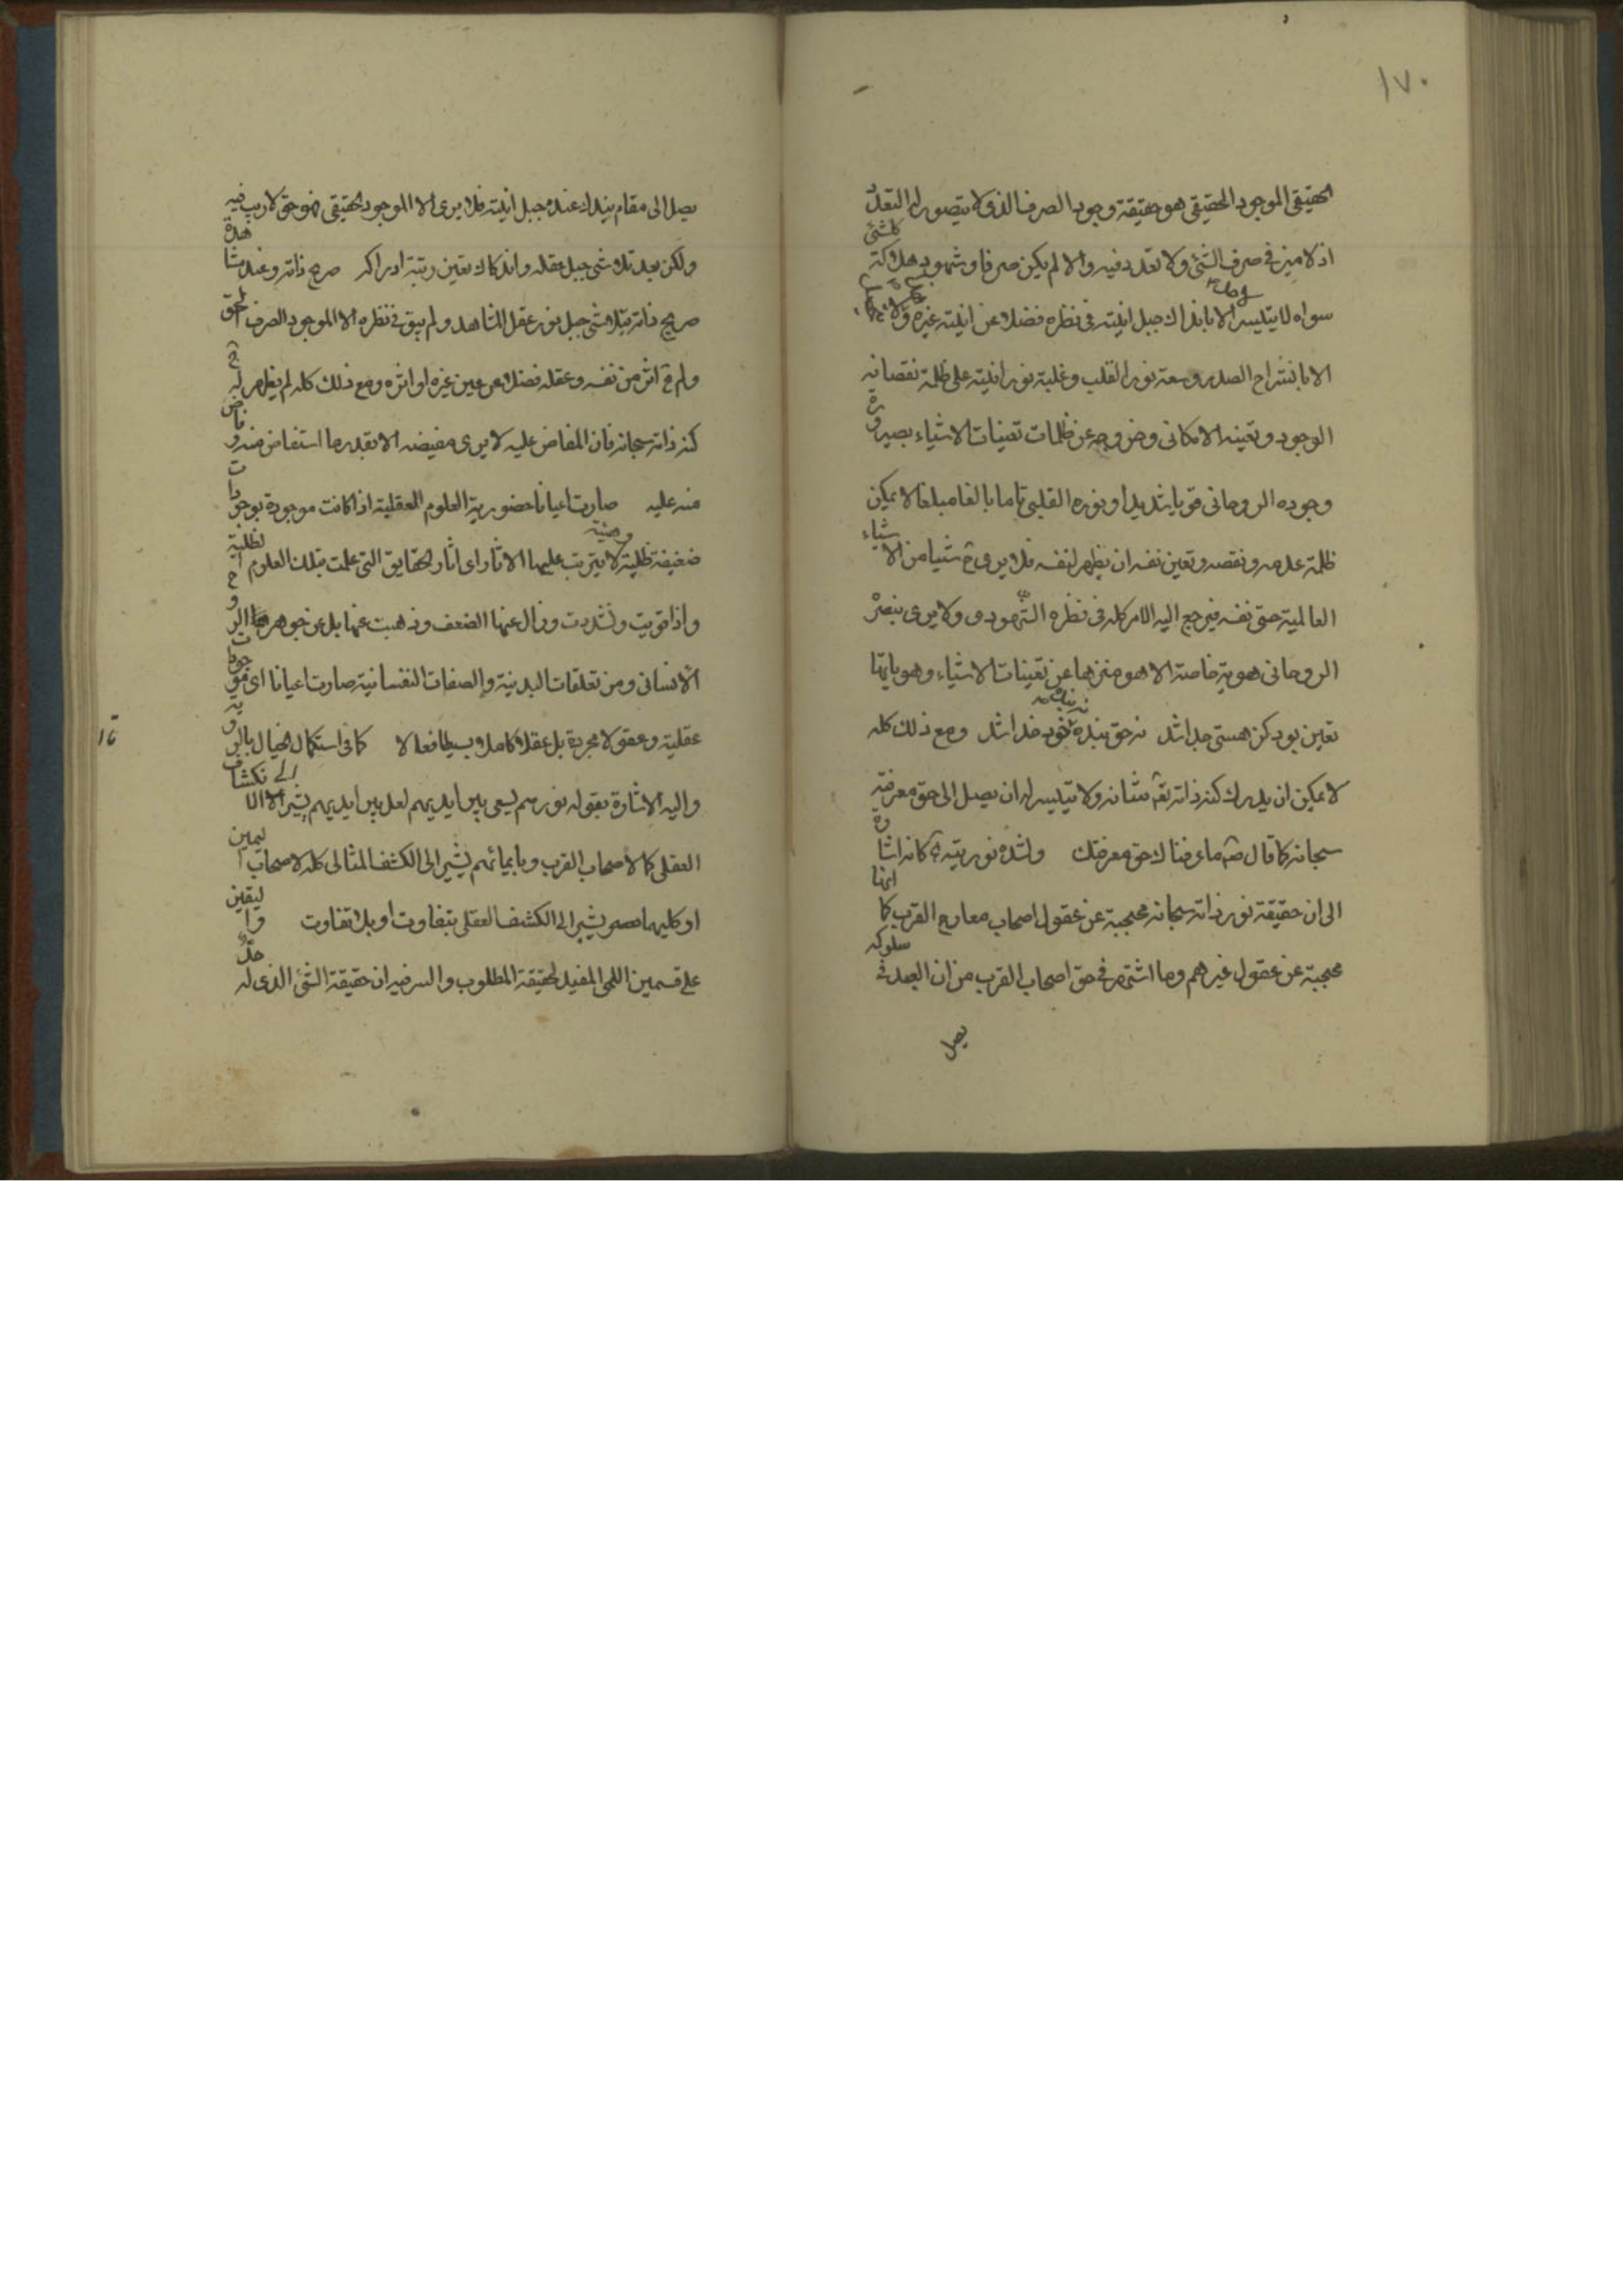 ١٧٠
الحقيقى الموجود الحقيقى هو حقيقة وجود الصرف الذى لا يتصور له التعدد
اذ لا ميز فى صرف الشئ ولا تعدد فيه والا لم يكن صرفا وشهود هلاكة كلشئ
سواه لا يتيسر لاحد الا باندكاك جبل انيته فى نظره فضلا عن انية غيره ولا
الا بانشراح الصدر وسعة نور القلب وغلبة نور انيته على ظلمة نقصانه
الوجود وتعينه الامكانى وخروجه عن ظلمات تعينات الاشياء بصيرورة
وجوده الروحانى قويا شديدا ونوره القلبى تاما بالغا مبلغا لا يمكن
ظلمة عدمه ونقصه وتعين نفسه ان يظهر لنفسه فلا يرى ح شيئا من الاشياء
العالمية حتى نفسه فيرجع اليه الامر كله فى نظره الشهودى ولا يرى ببصره
الروحانى هوية خاصة الا هو منزها عن تعينات الاشياء وهوياتها
تعين بود كز هستى جدا شد نه حق بنده نه بنده خود خدا شد ومع ذلك كله
لا يمكن ان يدرك كنه ذاته تعه شانه ولا يتيسر له ان يصل الى حق معرفته
سبحانه كما قال صه ما عرفناك حق معرفتك ولشدة نوريته كانه اشارة
الى ان حقيقة نور ذاته سبحانه محتجبة عن عقول اصحاب معارج القرب كما انها
محتجبة عن عقول غيرهم وما اشتهر فى حق اصحاب القرب من ان العبد فى سلوكه
يصل
يصل الى مقام يندك عنده جبل انيته فلا يرى الا الموجود الحقيقى فهو حق لا ريب فيه
ولكن بعد تلاشى جبل عقله واندكاك تعين رتبة ادراكه صرح ذاته وعند مشاهدة
صريح ذاته يتلاشى جبل نور عقل المشاهد ولم يبق فى نظره الا الموجود الصرف الحق
ولم ح اثر من نفسه وعقله فضلا عن عين غيره او اثره ومع ذلك كله لم يظهر له ح
كنه ذاته سبحانه فان المفاض عليه لا يرى مفيضه الا بقدر ما استفاض منه وفاض
منه عليه صارت اعيانا حضورية العلوم العقلية اذا كانت موجودة بوجودات
ضعيفة ظلية لا يترتب عليها الاثار اى اثار الحقايق التى علمت بتلك العلوم الظلية
واذا قويت واشتدت وزال عنها الضعف وذهبت عنها بل عن جوهر الروح
الانسانى ومن تعلقات البدنية والصفات النفسانية صارت اعيانا اى موجودات
عقلية وعقولا مجردة بل عقلا كاملا بسيطا فعالا كما فى استكمال الخيال بالروية
واليه الاشارة بقوله نورهم يسعى بين ايديهم لعل بين ايديهم يشير الى الانكشاف
العقلى كما لاصحاب القرب وبايمانهم يشير الى الكشف المثالى كله لاصحاب اليمين
او كليهما يشير الى الكشف العقلى بتفاوت او بلا تفاوت واليقين
على قسمين اللمى المفيد لحقيقة المطلوب والسر فيه ان حقيقة الشئ الذى له حد